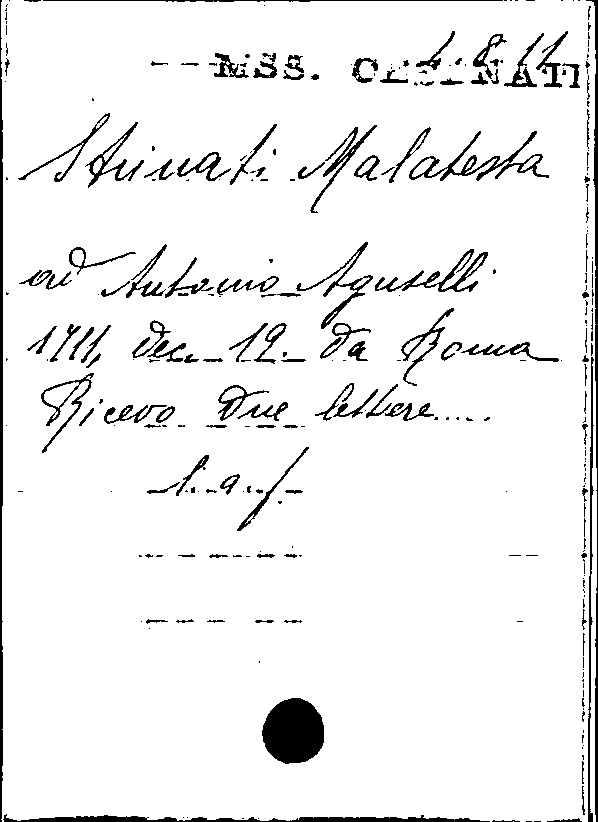 MSS. CESENATI
Strinati Malatesta
ad Antonio Aguselli
1711, dec. 19. da Roma
Ricevo due lettere.....
l. a. f.